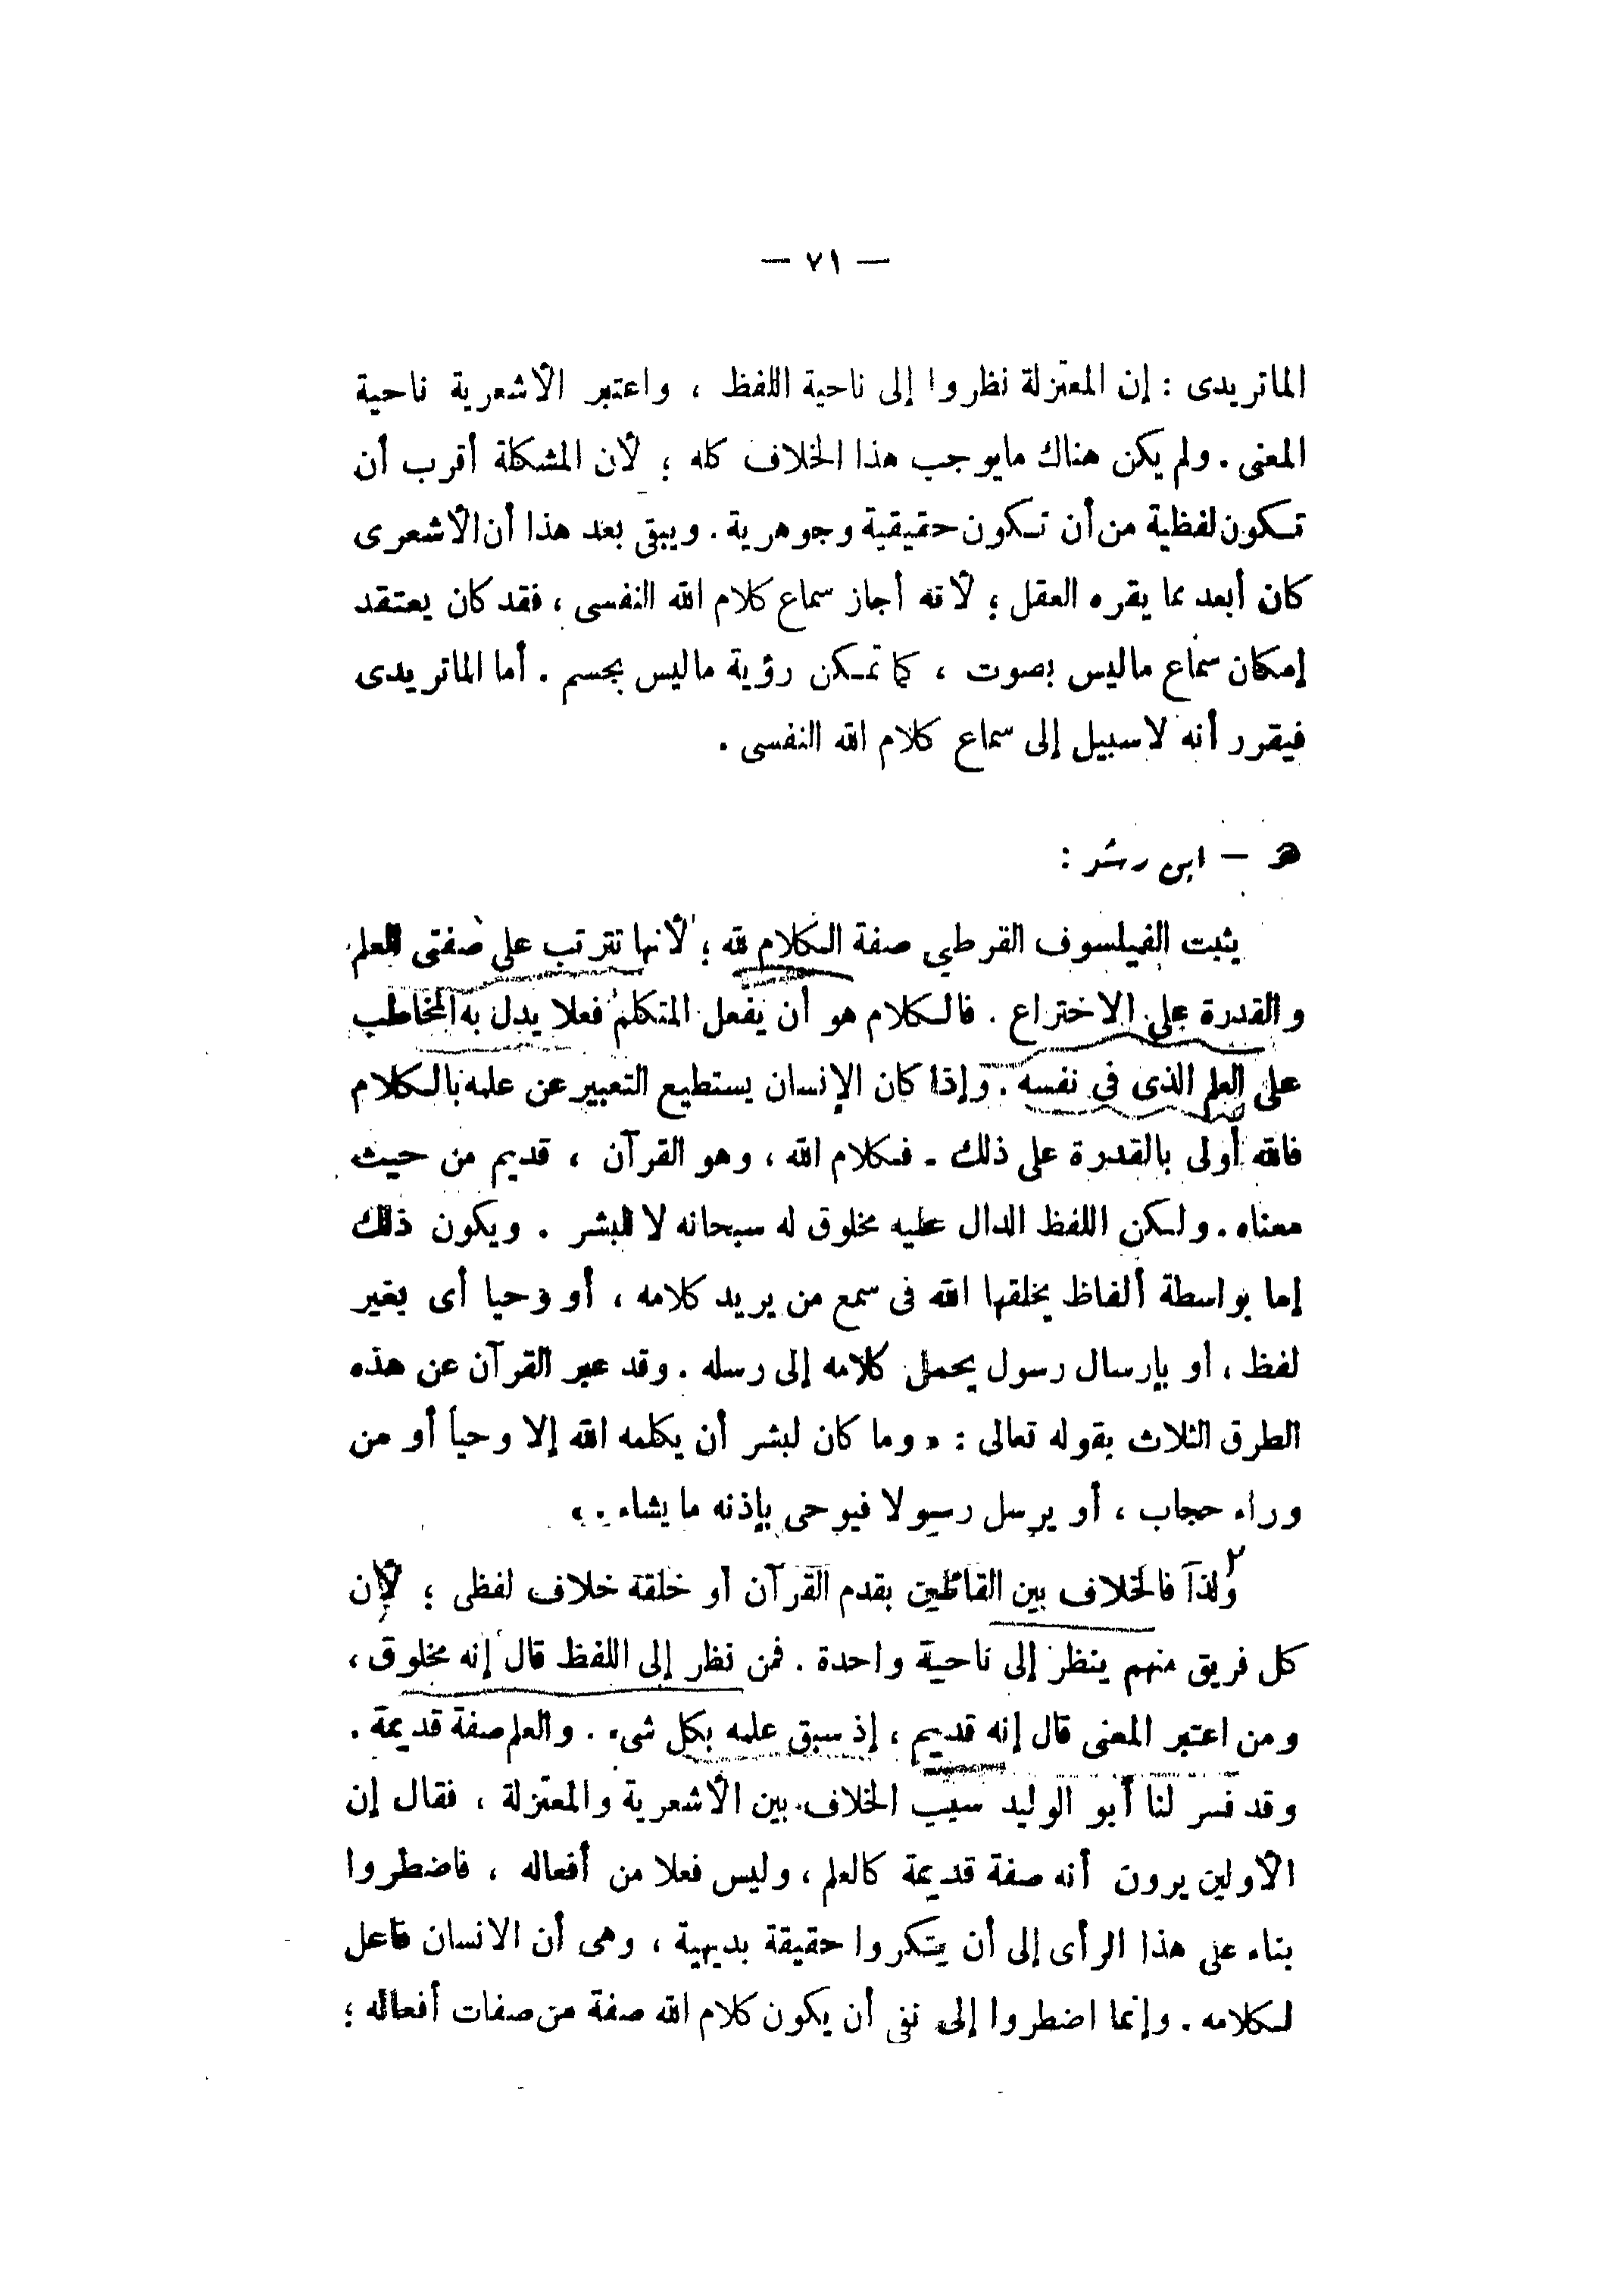 — ٧١ —
الماتريدى : إن المعتزلة نظروا إلى ناحية اللفظ ، واعتبر الأشعرية ناحية
المعنى . ولم يكن هناك مايوجب هذا الخلاف كله ؛ لأن المشكلة أقرب أن
تكون لفظية من أن تكون حقيقية وجوهرية . ويبقى بعد هذا أن الأشعرى
كان أبعد مما يقره العقل ؛ لأنه أجاز سماع كلام الله النفسى ، فقد كان يعتقد
إمكان سماع ماليس بصوت ، كما تمكن رؤية ماليس بجسم . أما الماتريدى
فيقرر أنه لاسبيل إلى سماع كلام الله النفسى .
هـ — ابن رشد :
يثبت الفيلسوف القرطبي صفة الكلام لله ؛ لأنها تترتب على صفتى العلم
والقدرة على الاختراع . فالكلام هو أن يفعل المتكلم فعلا يدل به المخاطب
على العلم الذى فى نفسه . وإذا كان الإنسان يستطيع التعبير عن علمه بالكلام
فالله أولى بالقدرة على ذلك . فكلام الله ، وهو القرآن ، قديم من حيث
معناه . ولكن اللفظ الدال عليه مخلوق له سبحانه لا للبشر . ويكون ذلك
إما بواسطة ألفاظ يخلقها الله فى سمع من يريد كلامه ، أو وحيا أى بغير
لفظ ، أو بإرسال رسول يحمل كلامه إلى رسله . وقد عبر القرآن عن هذه
الطرق الثلاث بقوله تعالى : « وما كان لبشر أن يكلمه الله إلا وحياً أو من
وراء حجاب ، أو يرسل رسولا فيوحى بإذنه مايشاء . »
ولذا فالخلاف بين القائلين بقدم القرآن أو خلقة خلاف لفظى ؛ لأن
كل فريق منهم ينظر إلى ناحية واحدة . فمن نظر إلى اللفظ قال إنه مخلوق ،
ومن اعتبر المعنى قال إنه قديم ، إذ سبق علمه بكل شىء . والعلم صفة قديمة .
وقد فسر لنا أبو الوليد سبب الخلاف بين الأشعرية والمعتزلة ، فقال إن
الأولين يرون أنه صفة قديمة كالعلم ، وليس فعلا من أفعاله ، فاضطروا
بناء على هذا الرأى إلى أن ينكروا حقيقة بديهية ، وهى أن الانسان فاعل
لكلامه . وإنما اضطروا إلى نفى أن يكون كلام الله صفة من صفات أفعاله ؛